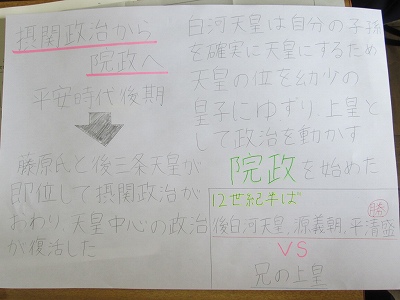 摂関政治から
院政へ
平安時代後期
藤原氏と後三条天皇が
即位して摂関政治が
おわり、天皇中心の政治
が復活した
白河天皇は自分の子孫
を確実に天皇にするため
天皇の位を幼少の
皇子にゆずり、上皇と
して政治を動かす
院政を始めた
12世紀半ば
勝
後白河天皇、源義朝、平清盛
VS
兄の上皇